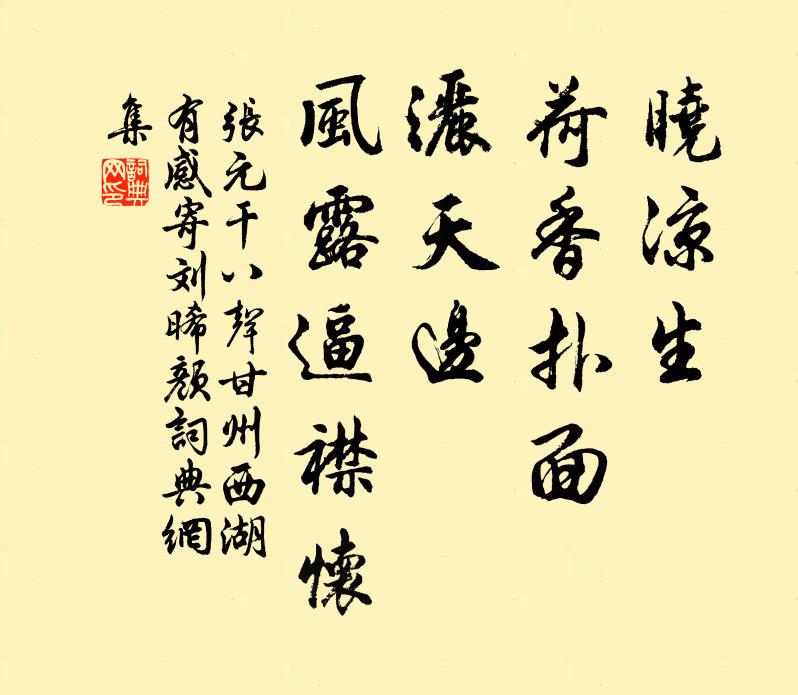 曉凉生
荷香扑面
灑天邊
風露逼襟懷
張元干八聲甘州西湖
有感寄刘晞顏詞典網
集
詞典網印